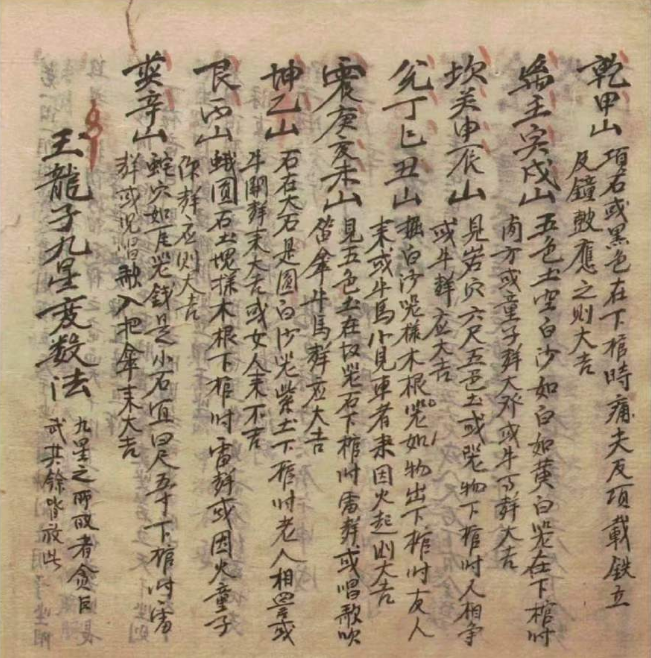 乾甲山 項右或黑色在下棺時痛夫及項載鉄立
及鐘鼓應之則大吉
離壬寅戌山 五色土空白沙如白如黄白器在下棺时
南方或童子群大吠或牛马群大吉
坎癸申辰山 見岩穴六尺五色土或器物下棺时人相争
或牛群应大吉
兊丁巳丑山 掘白沙器樣木根器如物出下棺时友人
来或牛馬小見車者来因火起則大吉
震庚亥未山 見五色土在坟器石下棺时雷群或唱歌吹
笛傘牛馬群應大吉
坤乙山 石在大石是圓白沙器紫土下棺时老人相哭或
牛鬪群来大吉或女人来不吉
艮丙山 蛾圓石土塊樣木根下棺时雷群或因火童子
群应则大吉
巽辛山 蛇穴如瓦器錢是小石宜四尺五寸下棺时雷
群或児唱歌入把傘来大吉
玉龍子九星变数法 九星之所取者貪巨
武其餘皆放此